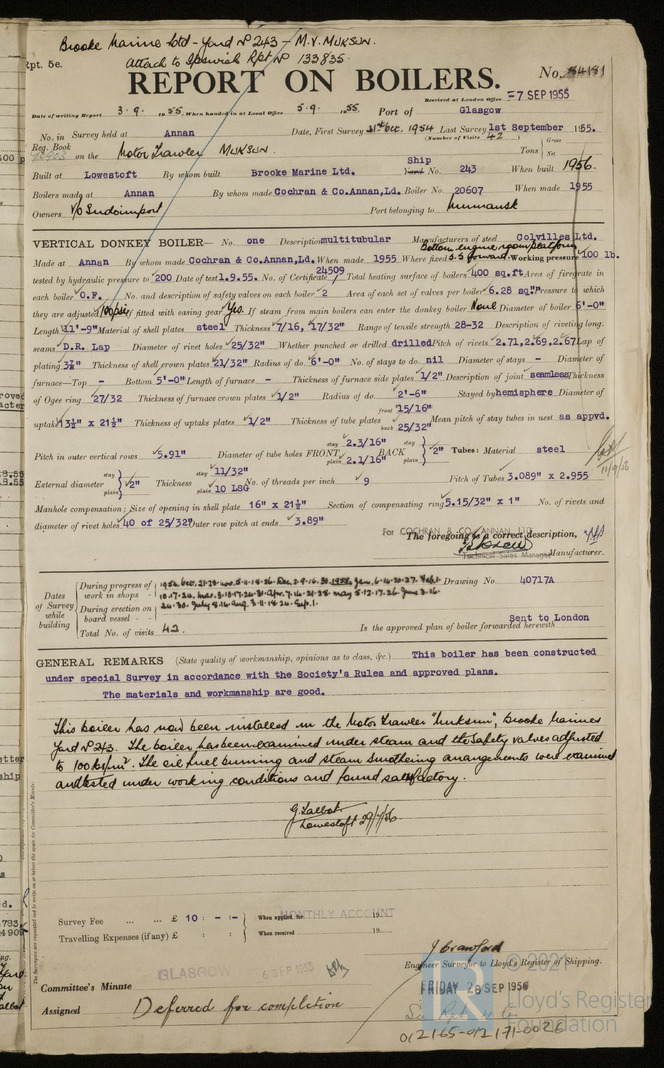 Brooke Marine Ltd - Yard No 243 - M.V. MUKSUN.
Rpt. 5e. Attach to Ipswich Rpt No 133835.
REPORT ON BOILERS. No. 84181
Received at London Office -7 SEP 1955
Date of writing Report 3.9. 1955. When handed in at Local Office 5.9. 1955. Port of Glasgow
No. in Survey held at Annan Date, First Survey 21st Oct. 1954 Last Survey 1st September 1955.
Reg. Book (Number of Visits 42)
on the Motor Trawler MUKSUN Tons Gross Net
Built at Lowestoft By whom built Brooke Marine Ltd. Ship Yard No. 243 When built 1956.
Boilers made at Annan By whom made Cochran & Co.Annan,Ld. Boiler No. 20607 When made 1955
Owners V/O Sudoimport Port belonging to Murmansk
VERTICAL DONKEY BOILER— No. one Description multitubular Manufacturers of steel Colvilles Ltd.
Made at Annan By whom made Cochran & Co.Annan,Ld. When made 1955 Where fixed Bottom engine room platform S.S forward. Working pressure 100 lb.
tested by hydraulic pressure to 200 Date of test 1.9.55. No. of Certificate 24509 Total heating surface of boilers 400 sq.ft. Area of firegrate in
each boiler O.F. No. and description of safety valves on each boiler 2 Area of each set of valves per boiler 6.28 sq." Pressure to which
they are adjusted 100psi If fitted with easing gear Yes. If steam from main boilers can enter the donkey boiler None Diameter of boiler 6'-0"
Length 11'-9" Material of shell plates steel Thickness 7/16, 17/32" Range of tensile strength 28-32 Description of riveting long.
seams D.R. Lap Diameter of rivet holes 25/32" Whether punched or drilled drilled Pitch of rivets 2.71,2.69,2.67 Lap of
plating 3½" Thickness of shell crown plates 21/32" Radius of do. 6'-0" No. of stays to do. nil Diameter of stays - Diameter of
furnace—Top - Bottom 5'-0" Length of furnace - Thickness of furnace side plates 1/2" Description of joint seamless Thickness
of Ogee ring 27/32 Thickness of furnace crown plates 1/2" Radius of do. 2'-6" Stayed by hemisphere Diameter of
uptake 13½" x 21½" Thickness of uptake plates 1/2" Thickness of tube plates front 15/16" back 25/32" Mean pitch of stay tubes in nest as appvd.
Pitch in outer vertical rows 5.91" Diameter of tube holes FRONT stay 2.3/16" plain 2.1/16" BACK stay plain 2" Tubes: Material steel
External diameter stay plain 2" Thickness stay 11/32" plain 10 LSG No. of threads per inch 9 Pitch of Tubes 3.089" x 2.955
Manhole compensation: Size of opening in shell plate 16" x 21½" Section of compensating ring 5.15/32" x 1" No. of rivets and
diameter of rivet holes 40 of 25/32" Outer row pitch at ends 3.89"
For COCHRAN & CO. ANNAN, LTD.
The foregoing is a correct description,
Technical Sales Manager Manufacturer.
Dates of Survey while building
During progress of work in shops - -
During erection on board vessel - - -
Total No. of visits 42.
Drawing No. 40717A
Is the approved plan of boiler forwarded herewith Sent to London
GENERAL REMARKS (State quality of workmanship, opinions as to class, &c.) This boiler has been constructed
under special Survey in accordance with the Society's Rules and approved plans.
The materials and workmanship are good.
This boiler has now been installed in the Motor Trawler "Muksun", Brooke Marines
Yard No 243. The boiler has been examined under steam and the Safety valves adjusted
to 100 lbs/in². The oil fuel burning and steam smothering arrangements were examined
and tested under working conditions and found satisfactory.
G. Talbot.
Lowestoft
Survey Fee ... ... £ 10 : - : - When applied for MONTHLY ACCOUNT 19
Travelling Expenses (if any) £ : : When received 19
J Crawford
Engineer Surveyor to Lloyd's Register of Shipping.
GLASGOW 6 SEP 1955
Committee's Minute FRIDAY 28 SEP 1956
Assigned Deferred for completion
© 2021 Lloyd's Register Foundation
012165-012171-0026